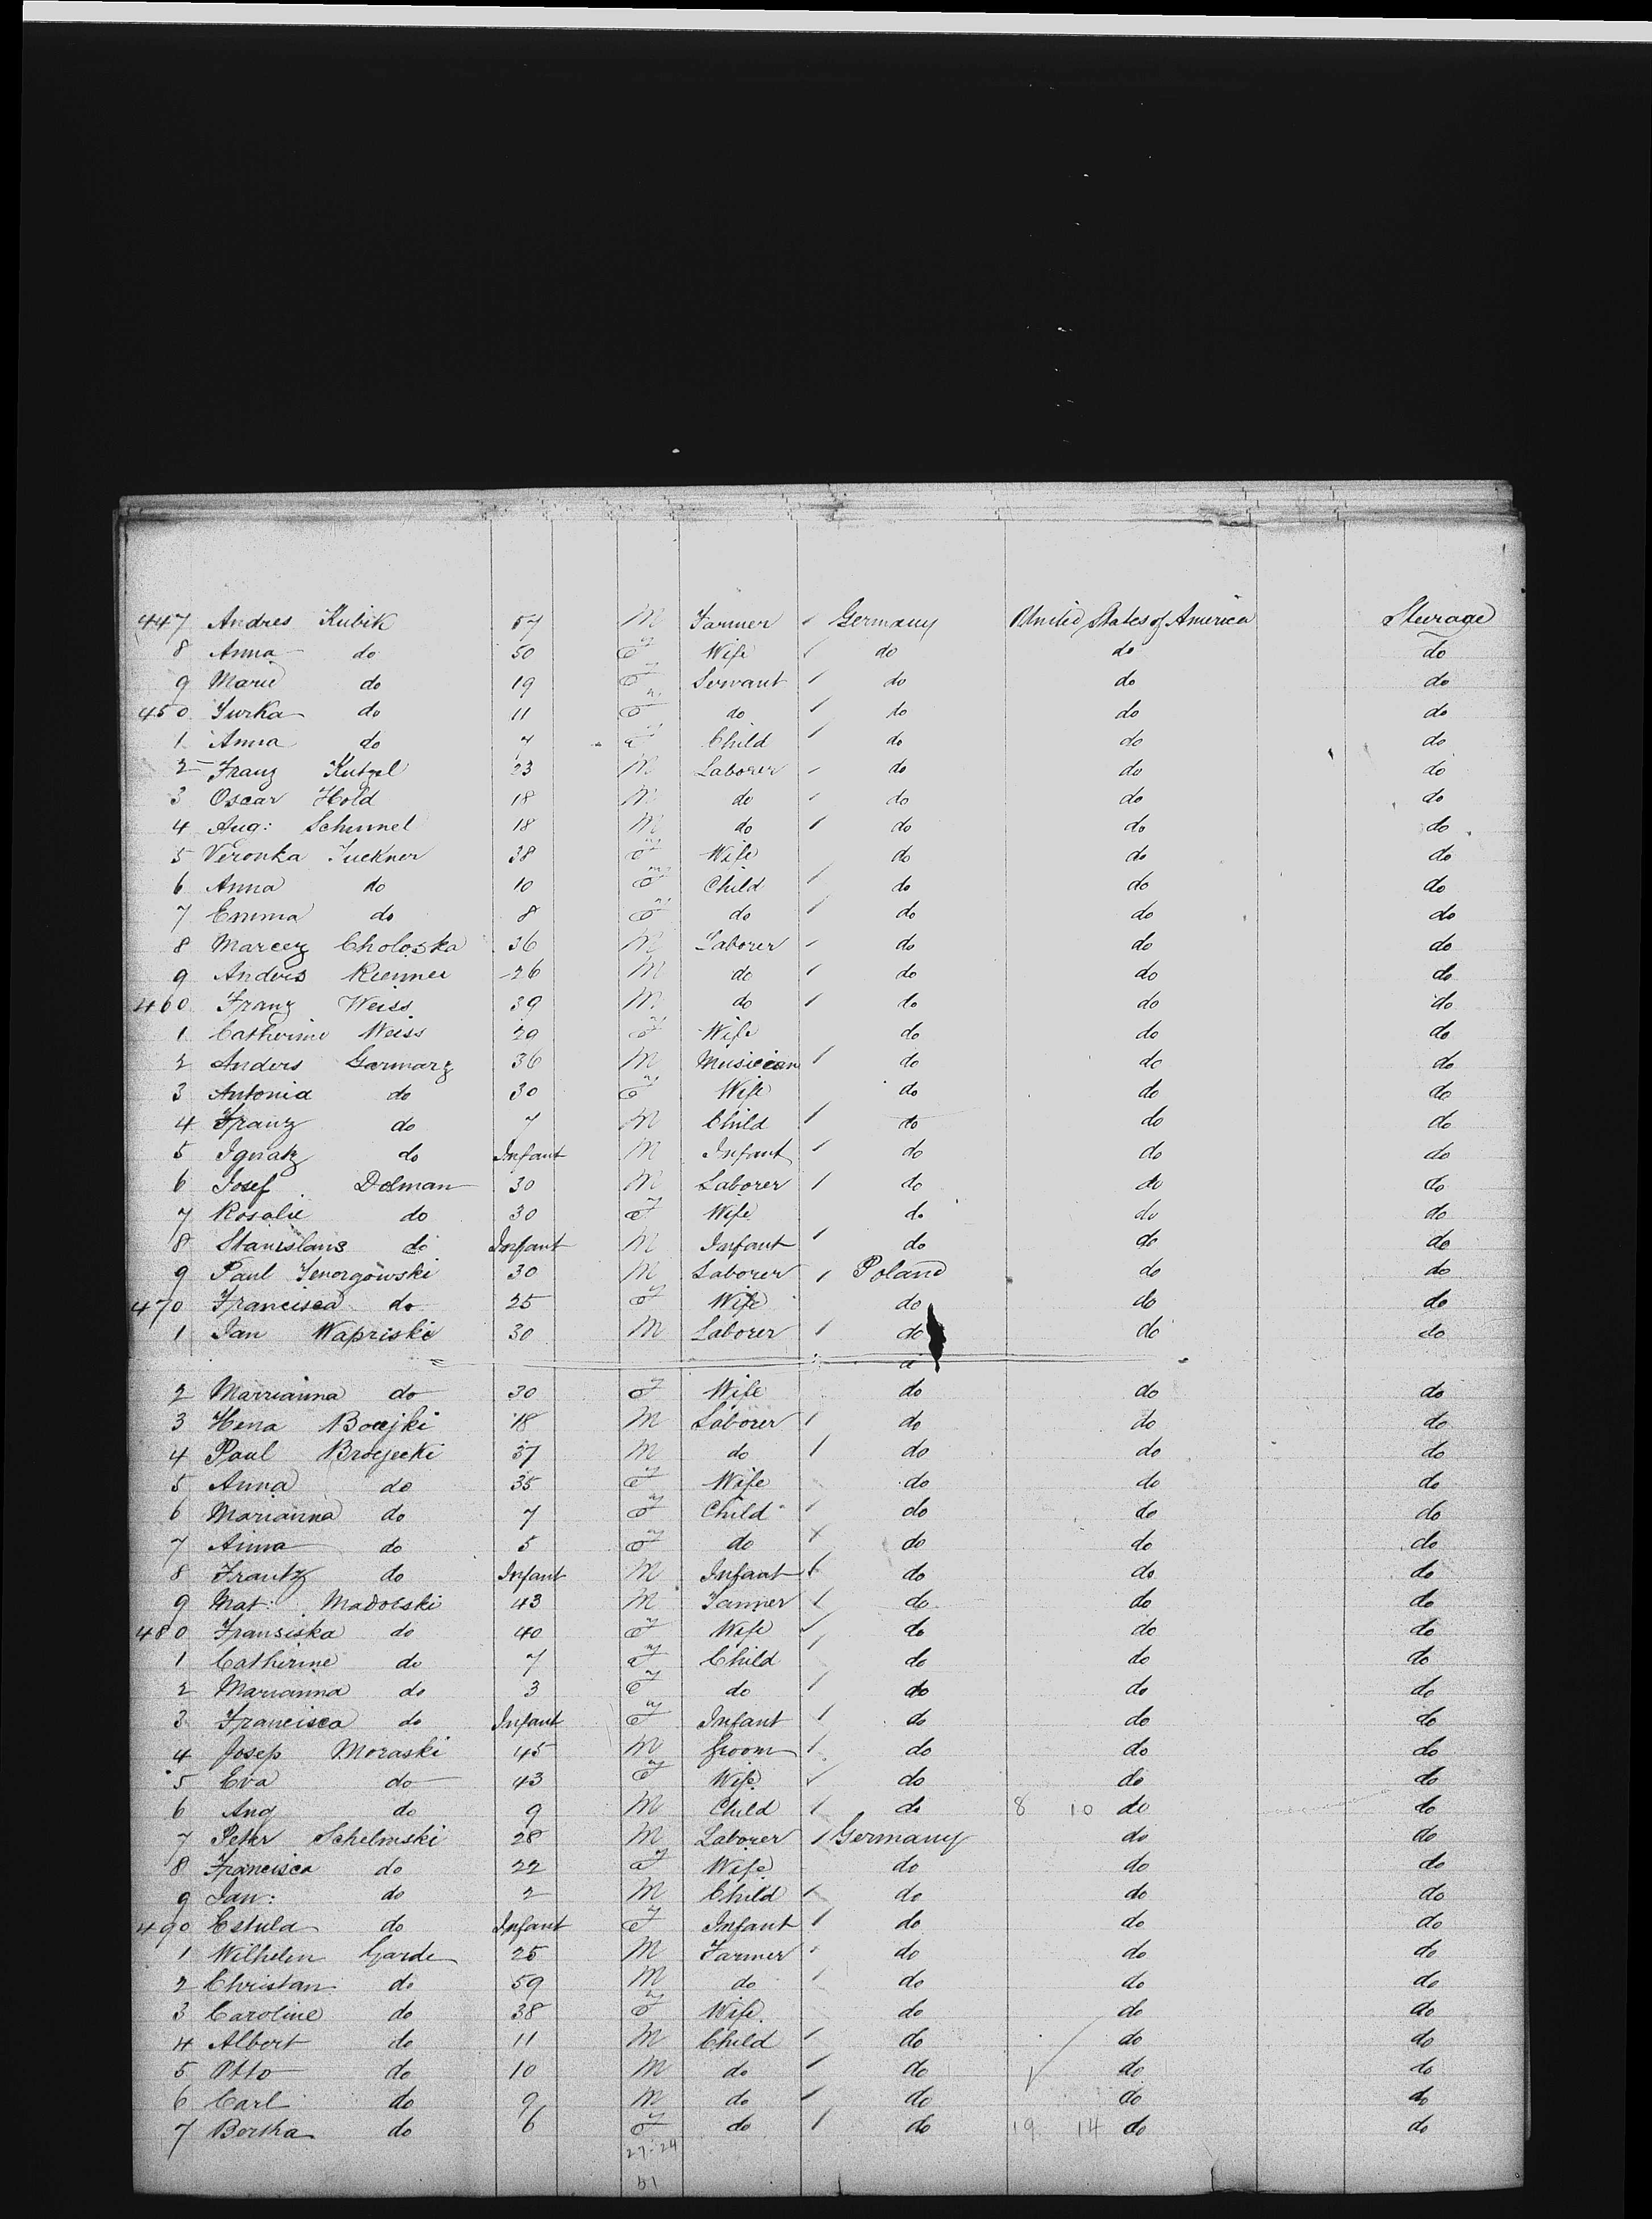 447 Andres Kubik 57 M Farmer / Germany United States of America Steerage
8 Anna do 50 F Wife / do do do
9 Marie do 19 F Servant / do do do
450 Jurka do 11 F do / do do do
1 Anna do 7 F Child / do do do
2 Franz Kutzel 23 M Laborer / do do do
3 Oscar Hold 18 M do / do do do
4 Aug: Schimel 18 M do / do do do
5 Veronka Tuckner 38 F Wife do do do
6 Anna do 10 F Child / do do do
7 Emma do 8 F do / do do do
8 Choloska 36 M Laborer / do do do
9 Andres 26 M do / do do do
460 Franz Weiss 39 M do / do do do
1 Catherine Weiss 29 F Wife do do do
2 Anders Garmarz 36 M Musician / do do do
3 Antonia do 30 F Wife do do do
4 Franz do 7 M Child / do do do
5 Ignatz do Infant M Infant / do do do
6 Josef Dolman 30 M Laborer / do do do
7 Rosalie do 30 F Wife do do do
8 Stanislaus do Infant M Infant / do do do
9 Paul 30 M Laborer / Poland do do
470 Francisca do 25 F Wife do do do
1 Jan Wapriski 30 M Laborer / do do do
2 Marrianna do 30 F Wife do do do
3 Hena 18 M Laborer / do do do
4 Paul 37 M do / do do do
5 Anna do 35 F Wife do do do
6 Marianna do 7 F Child / do do do
7 Anna do 5 F do / do do do
8 Frantz do Infant M Infant / do do do
9 Mat: Madolski 43 M Farmer / do do do
480 Fransiska do 40 F Wife / do do do
1 Catherine do 7 F Child / do do do
2 Marianna do 3 F do / do do do
3 Francisca do Infant F Infant / do do do
4 Josep Moraski 45 M Groom / do do do
5 Eva do 43 F Wife / do do do
6 Aug do 9 M Child / do 8 10 do do
7 Peter Schelmski 28 M Laborer / Germany do do
8 Francisca do 22 F Wife do do do
9 Jan: do 2 M Child / do do do
490 Estula do Infant F Infant / do do do
1 Wilhelm Garde 25 M Farmer / do do do
2 Christan do 59 M do / do do do
3 Caroline do 38 F Wife do do do
4 Albert do 11 M Child / do do do
5 Otto do 10 M do / do do do
6 Carl do 9 M do / do do do
7 Bertha do 6 F do / do 19 14 do do
27-24
51